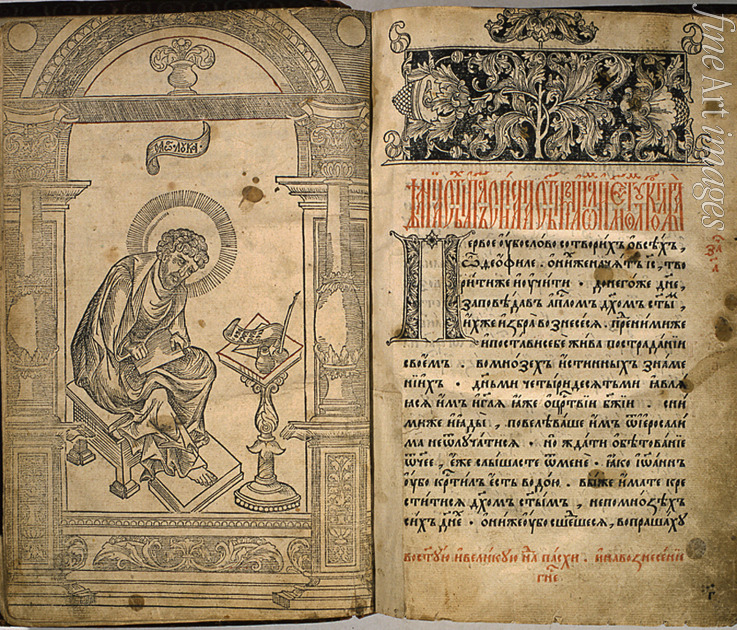 лꙋка
Первое ᲂубо слово сотворихъ ѡ всѣхъ,
ѽ ѳеофиле. ѡ ниже начатъ і҃с, тво
рити же и ᲂучити. до негоже дн҃е,
заповѣдавъ ап҃лом дх҃ом ст҃ым
ихже избра вознесесѧ. пред ними же
и постави себе жива по страданїи
своемъ во мнозех истинных знаме
нїих. дньми четыридесѧтьми ꙗвлѧ
ꙗсѧ им, и гл҃ѧ ꙗже о цр҃твїи бж҃їи. с ни
миже и ꙗды, повелѣваше им ѿ їеросали
ма не ѿлꙋчатисѧ. но ждати обѣтованїе
ѿч҃ее, еже слышасте ѿ мене. ꙗко їѡаннъ
ᲂубо кр҃тил есть водою. вы же имате кре
ститисѧ дх҃ом ст҃ым, не по мнозѣх
сих дн҃е. ѡни же ᲂубо сшедшесѧ, вопрашахꙋ
во ст҃ꙋю и великꙋю нл҃ю пасхи. и на вознесенїе
гн҃е
fine Art images